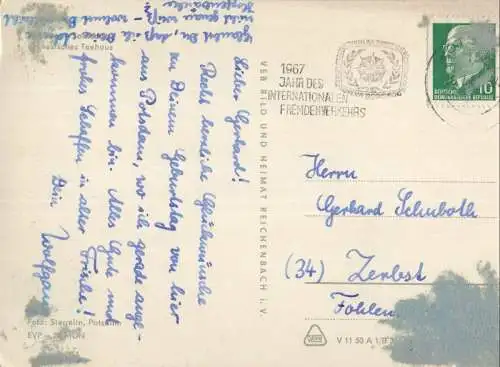 Chinesisches Teehaus
Lieber Gerhard!
Recht herzliche Glückwünsche
zu Deinem Geburtstag von hier
aus Potsdam, wo ich gerade ange-
kommen bin. Alles Gute und
frohes Schaffen in alter Frische!
Dein Wolfgang
Glaubst Du, daß ich
nicht genau weiß
Foto: Stegelin, Potsdam
EVP
VEB BILD UND HEIMAT REICHENBACH i. V.
1967
JAHR DES
INTERNATIONALEN
FREMDENVERKEHRS
10
DEUTSCHE
DEMOKRATISCHE REPUBLIK
Herrn
Gerhard Schuboth
(34) Zerbst
Fohlen
V 11 50 A 1/B